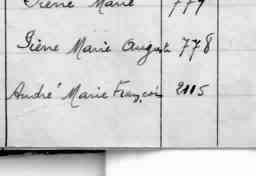 Irène Marie 779
Irène Marie August 778
André Marie François 2115